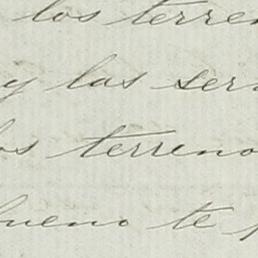 los terren
y las ser
los terreno
bueno te p